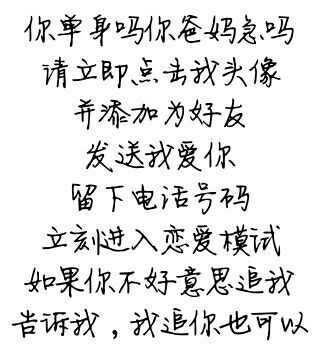 你单身吗你爸妈急吗
请立即点击我头像
并添加为好友
发送我爱你
留下电话号码
立刻进入恋爱模试
如果你不好意思追我
告诉我，我追你也可以